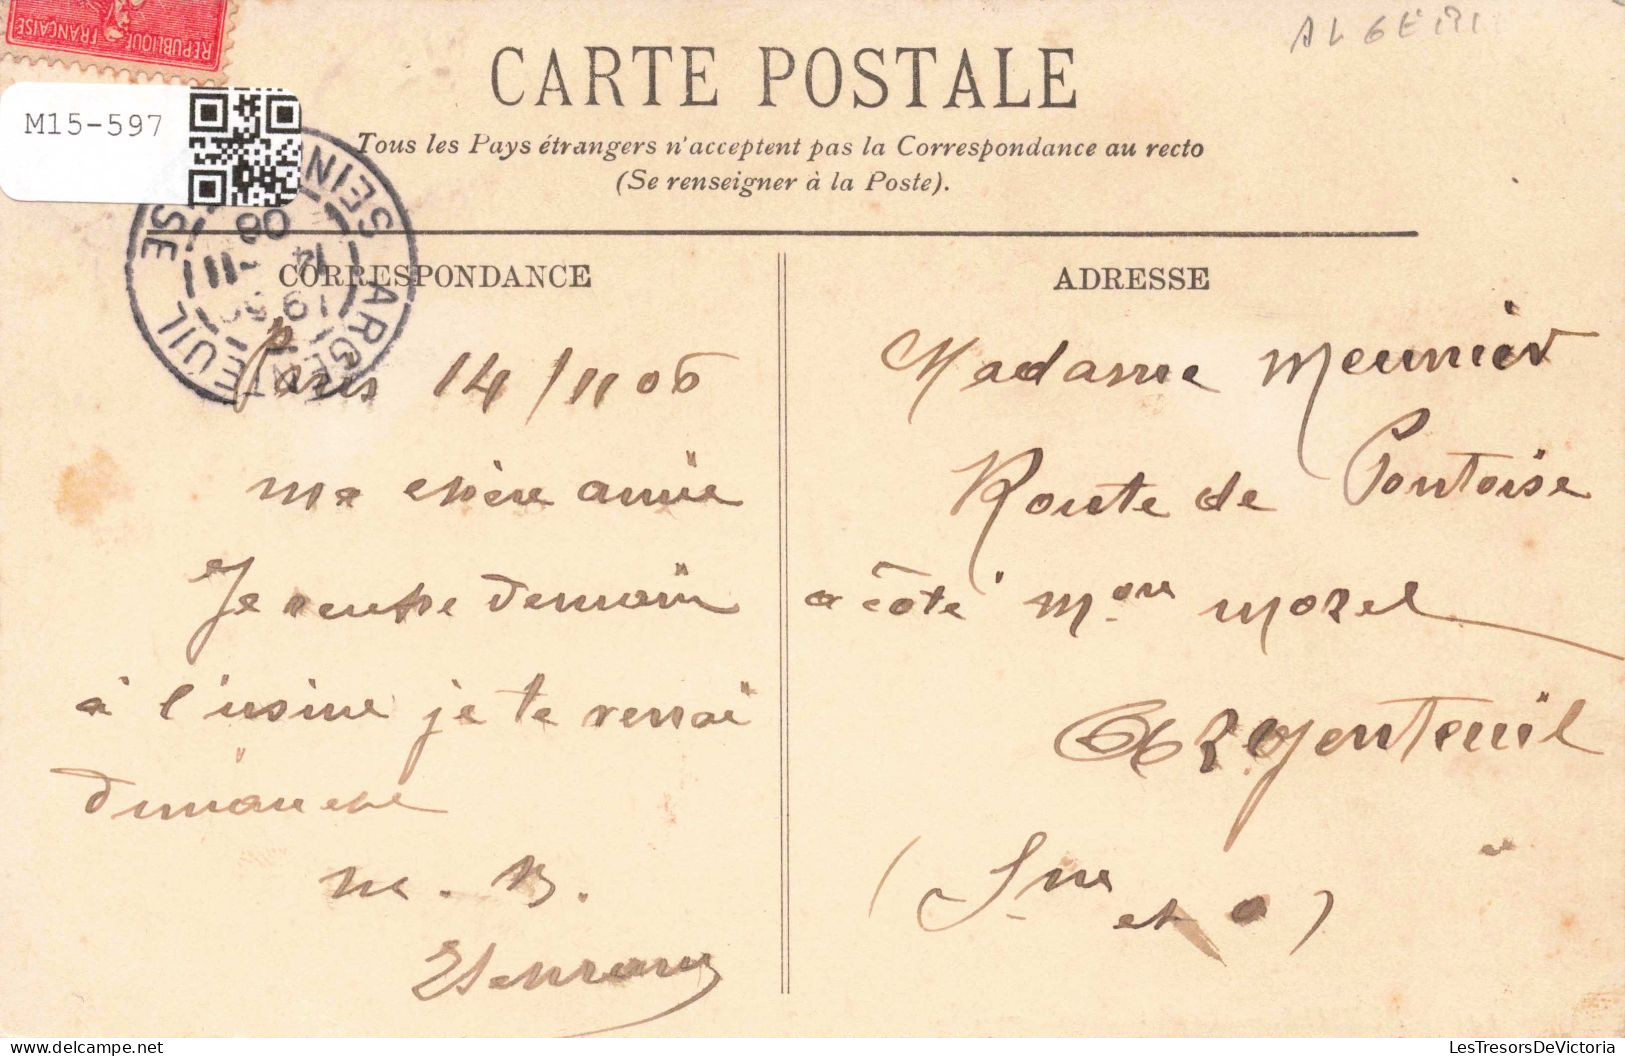 REPUBLIQUE FRANÇAISE
ALGERI
M15-597
CARTE POSTALE
Tous les Pays étrangers n'acceptent pas la Correspondance au recto
(Se renseigner à la Poste).
ARGENTEUIL SEIN SE
19
14 - 11
06
CORRESPONDANCE
Paris 14/11 06
ma chère amie
Je rentre demain
à l'usine je te verrai
dimanche
M. B.
ADRESSE
Madame Meunier
Route de Pontoise
a côté Mon Morel
Argenteuil
(Sne et o)
LesTresorsDeVictoria